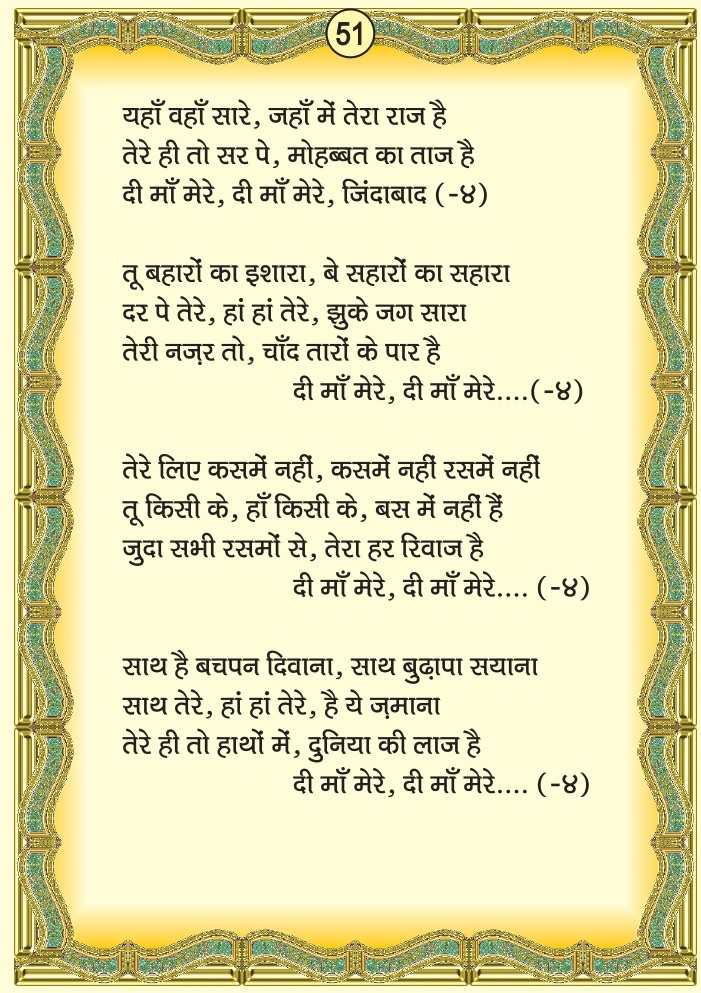 51
यहाँ वहाँ सारे, जहाँ में तेरा राज है
तेरे ही तो सर पे, मोहब्बत का ताज है
दी माँ मेरे, दी माँ मेरे, जिंदाबाद (-४)
तू बहारों का इशारा, बे सहारों का सहारा
दर पे तेरे, हां हां तेरे, झुके जग सारा
तेरी नज़र तो, चाँद तारों के पार है
दी माँ मेरे, दी माँ मेरे....(-४)
तेरे लिए कसमें नहीं, कसमें नहीं रसमें नहीं
तू किसी के, हाँ किसी के, बस में नहीं हैं
जुदा सभी रसमों से, तेरा हर रिवाज है
दी माँ मेरे, दी माँ मेरे.... (-४)
साथ है बचपन दिवाना, साथ बुढ़ापा सयाना
साथ तेरे, हां हां तेरे, है ये ज़माना
तेरे ही तो हाथों में, दुनिया की लाज है
दी माँ मेरे, दी माँ मेरे.... (-४)